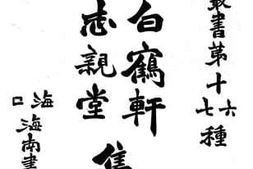 叢書第十六七種
白鶴軒
志親堂
集
海口
海南書